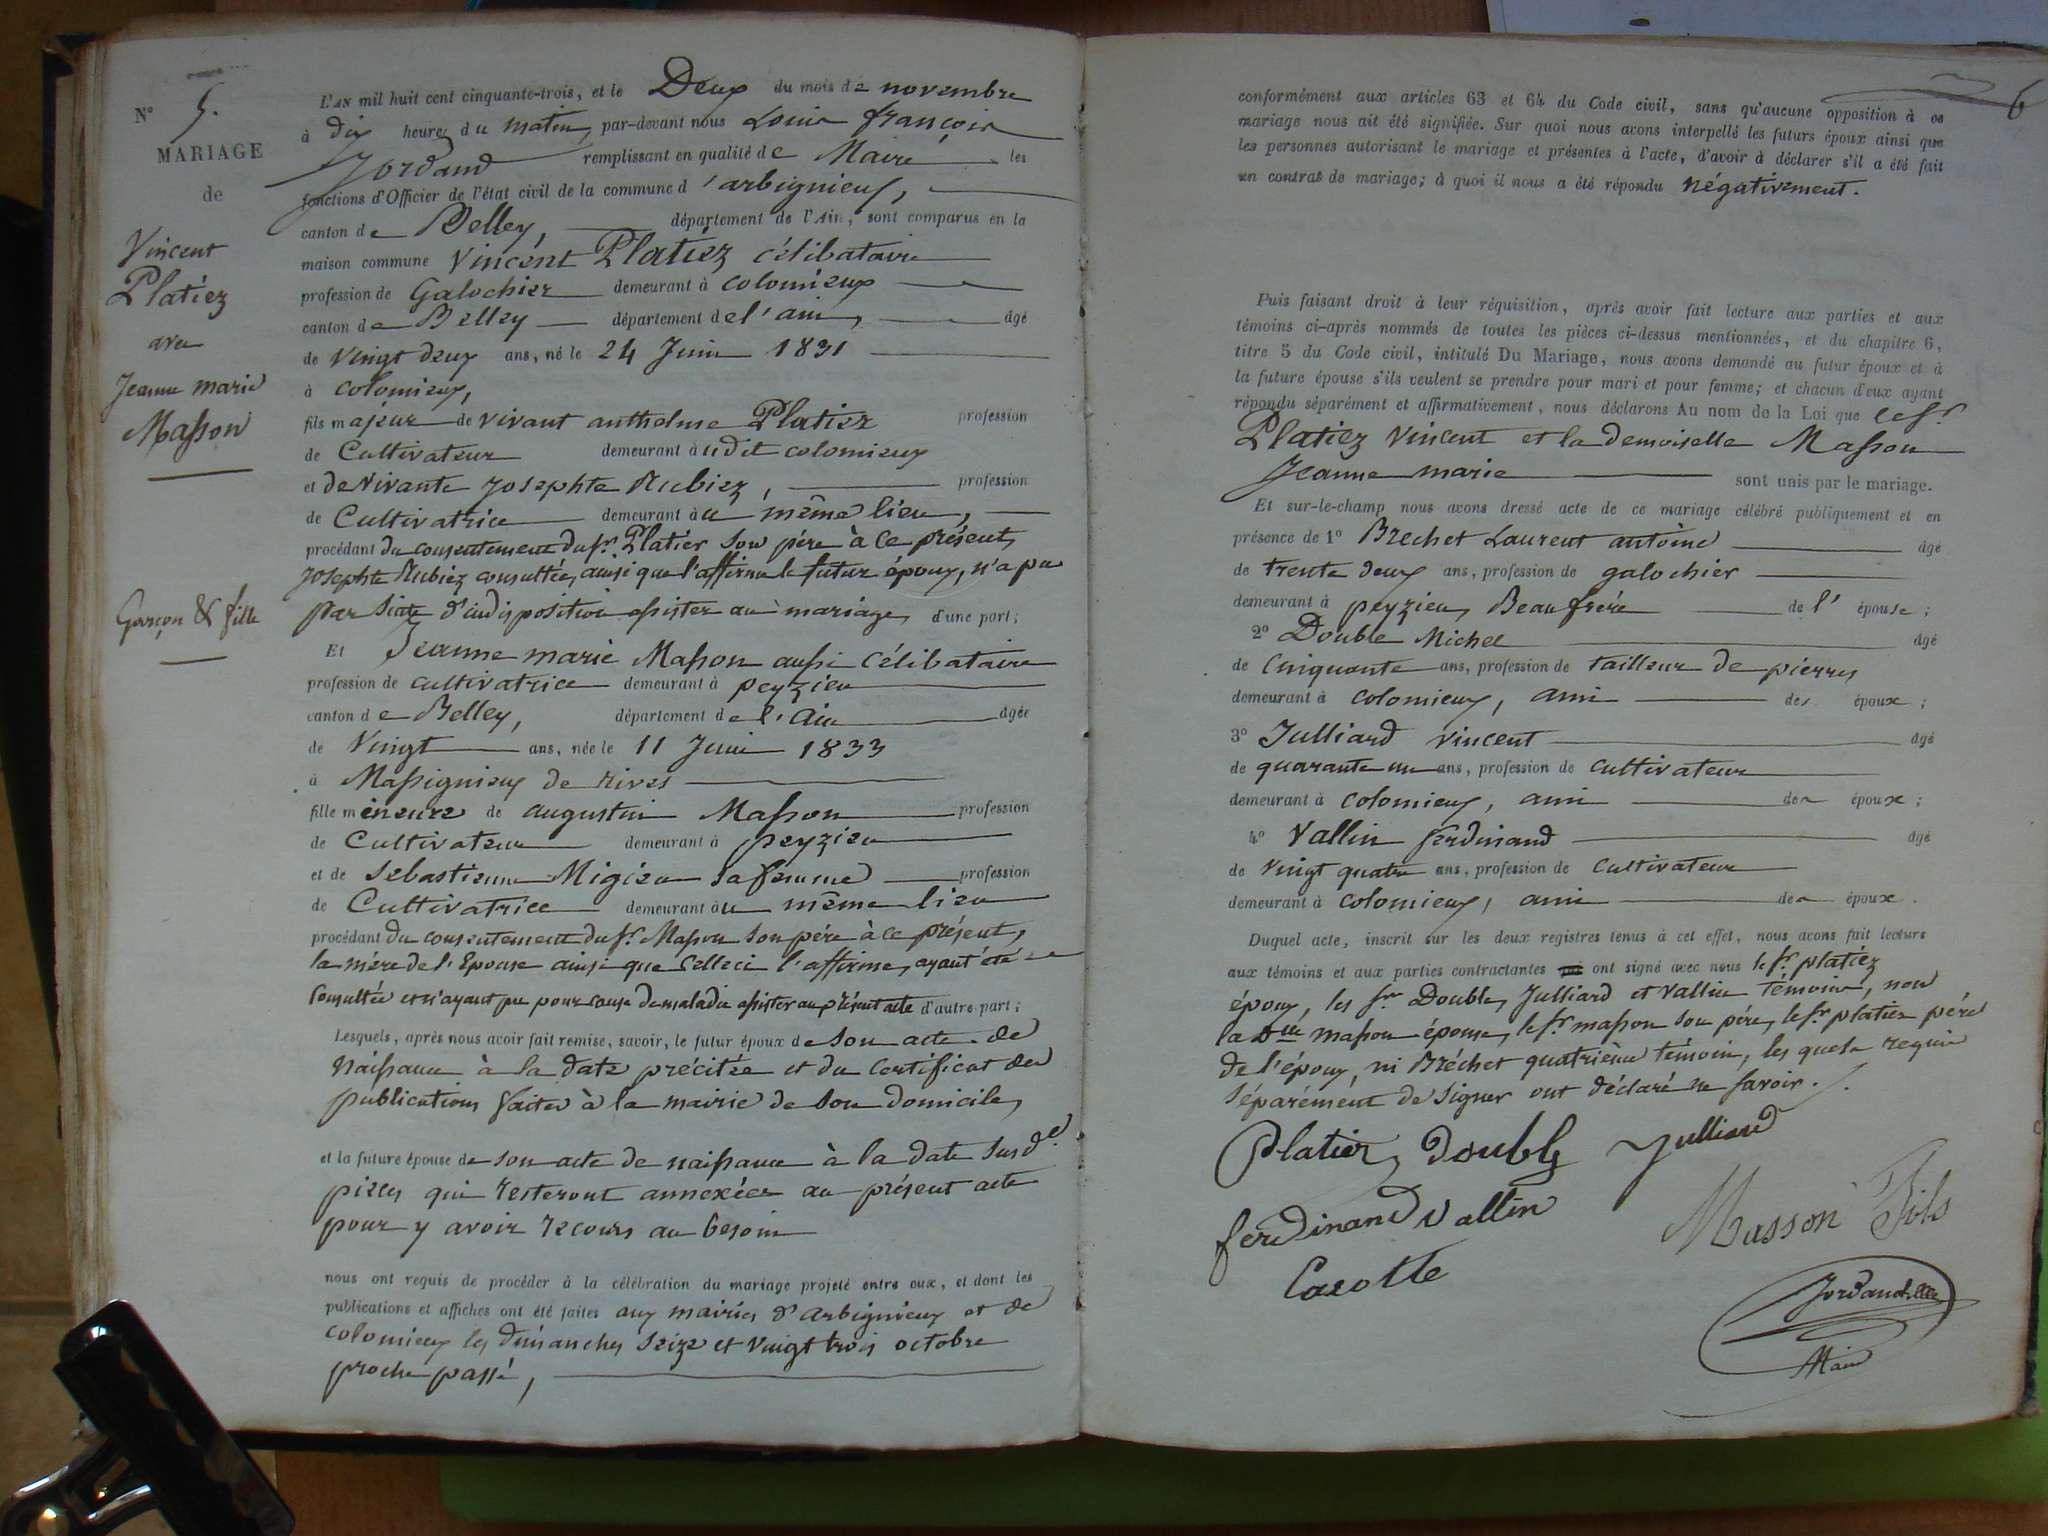 N° 5.
MARIAGE
de
Vincent
Platiez
avec
Jeanne marie
Masson
Garçon & fille
L'AN mil huit cent cinquante-trois, et le Deux du mois de novembre
à dix heures du matin, par-devant nous Louis françois
Jordand remplissant en qualité de Maire les
fonctions d'Officier de l'état civil de la commune d'arbignieux,
canton de Belley, département de l'Ain, sont comparus en la
maison commune Vincent Platiez célibataire
profession de Galochier demeurant à colomieux
canton de Belley département de l'ain, âgé
de vingt deux ans, né le 24 Juin 1831
à colomieux,
fils majeur de vivant anthelme Platiez profession
de Cultivateur demeurant audit colomieux
et de vivante Josephte Rubiez, profession
de Cultivatrice demeurant au même lieu,
procédant du consentement du sr. Platier son père à ce présent,
Josephte Rubiez consultée, ainsi que l'affirme le futur époux, n'a pu
par suite d'indisposition assister au mariage, d'une part;
Et Jeanne marie Masson aussi célibataire
profession de cultivatrice demeurant à peyzieu
canton de Belley, département de l'Ain âgée
de Vingt ans, née le 11 Juin 1833
à Massignieux de rives
fille mineure de augustin Masson profession
de Cultivateur demeurant à peyzieu
et de Sebastienne Migieu sa femme profession
de Cultivatrice demeurant au même lieu
procédant du consentement du sr. Masson son père à ce présent,
la mère de l'Epouse ainsi que celleci l'affirme, ayant été
consultée et n'ayant pu pour cause de maladie assister au présent acte d'autre part;
Lesquels, après nous avoir fait remise, savoir, le futur époux de son acte de
naissance à la date précitée et du certificat des
publications faites à la mairie de son domicile,
et la future épouse de son acte de naissance à la date susde.
pièces qui resteront annexées au présent acte
pour y avoir recours au besoin
nous ont requis de procéder à la célébration du mariage projeté entre eux, et dont les
publications et affiches ont été faites aux mairies d'arbignieux et de
colomieux les dimanches seize et vingt trois octobre
proche passé,
6
conformément aux articles 63 et 64 du Code civil, sans qu'aucune opposition à ce
mariage nous ait été signifiée. Sur quoi nous avons interpellé les futurs époux ainsi que
les personnes autorisant le mariage et présentes à l'acte, d'avoir à déclarer s'il a été fait
un contrat de mariage; à quoi il nous a été répondu négativement.
Puis faisant droit à leur réquisition, après avoir fait lecture aux parties et aux
témoins ci-après nommés de toutes les pièces ci-dessus mentionnées, et du chapitre 6,
titre 5 du Code civil, intitulé Du Mariage, nous avons demandé au futur époux et à
la future épouse s'ils veulent se prendre pour mari et pour femme; et chacun d'eux ayant
répondu séparément et affirmativement, nous déclarons Au nom de la Loi que le sr.
Platiez Vincent et la demoiselle Masson
Jeanne marie sont unis par le mariage.
Et sur-le-champ nous avons dressé acte de ce mariage célébré publiquement et en
présence de 1° Brechet Laurent antoine âgé
de trente deux ans, profession de galochier
demeurant à peyzieu, Beaufrère de l' épouse;
2° Double Michel âgé
de cinquante ans, profession de tailleur de pierres
demeurant à colomieux, ami des époux;
3° Julliard vincent âgé
de quarante un ans, profession de cultivateur
demeurant à colomieux, ami des époux;
4° Vallin ferdinand âgé
de Vingt quatre ans, profession de cultivateur
demeurant à colomieux, ami des époux.
Duquel acte, inscrit sur les deux registres tenus à cet effet, nous avons fait lecture
aux témoins et aux parties contractantes qui ont signé avec nous le sr. platiez
époux, les srs Double, Julliard et Vallin témoins, non
la Dlle masson épouse, le sr. masson son père, le sr. platier père
de l'époux, ni Bréchet quatrième témoin, les quels requis
séparément de signer ont déclaré ne savoir./.
Platier Double Julliard
ferdinand Vallin Masson Fils
Carotte
Jordand
Maire